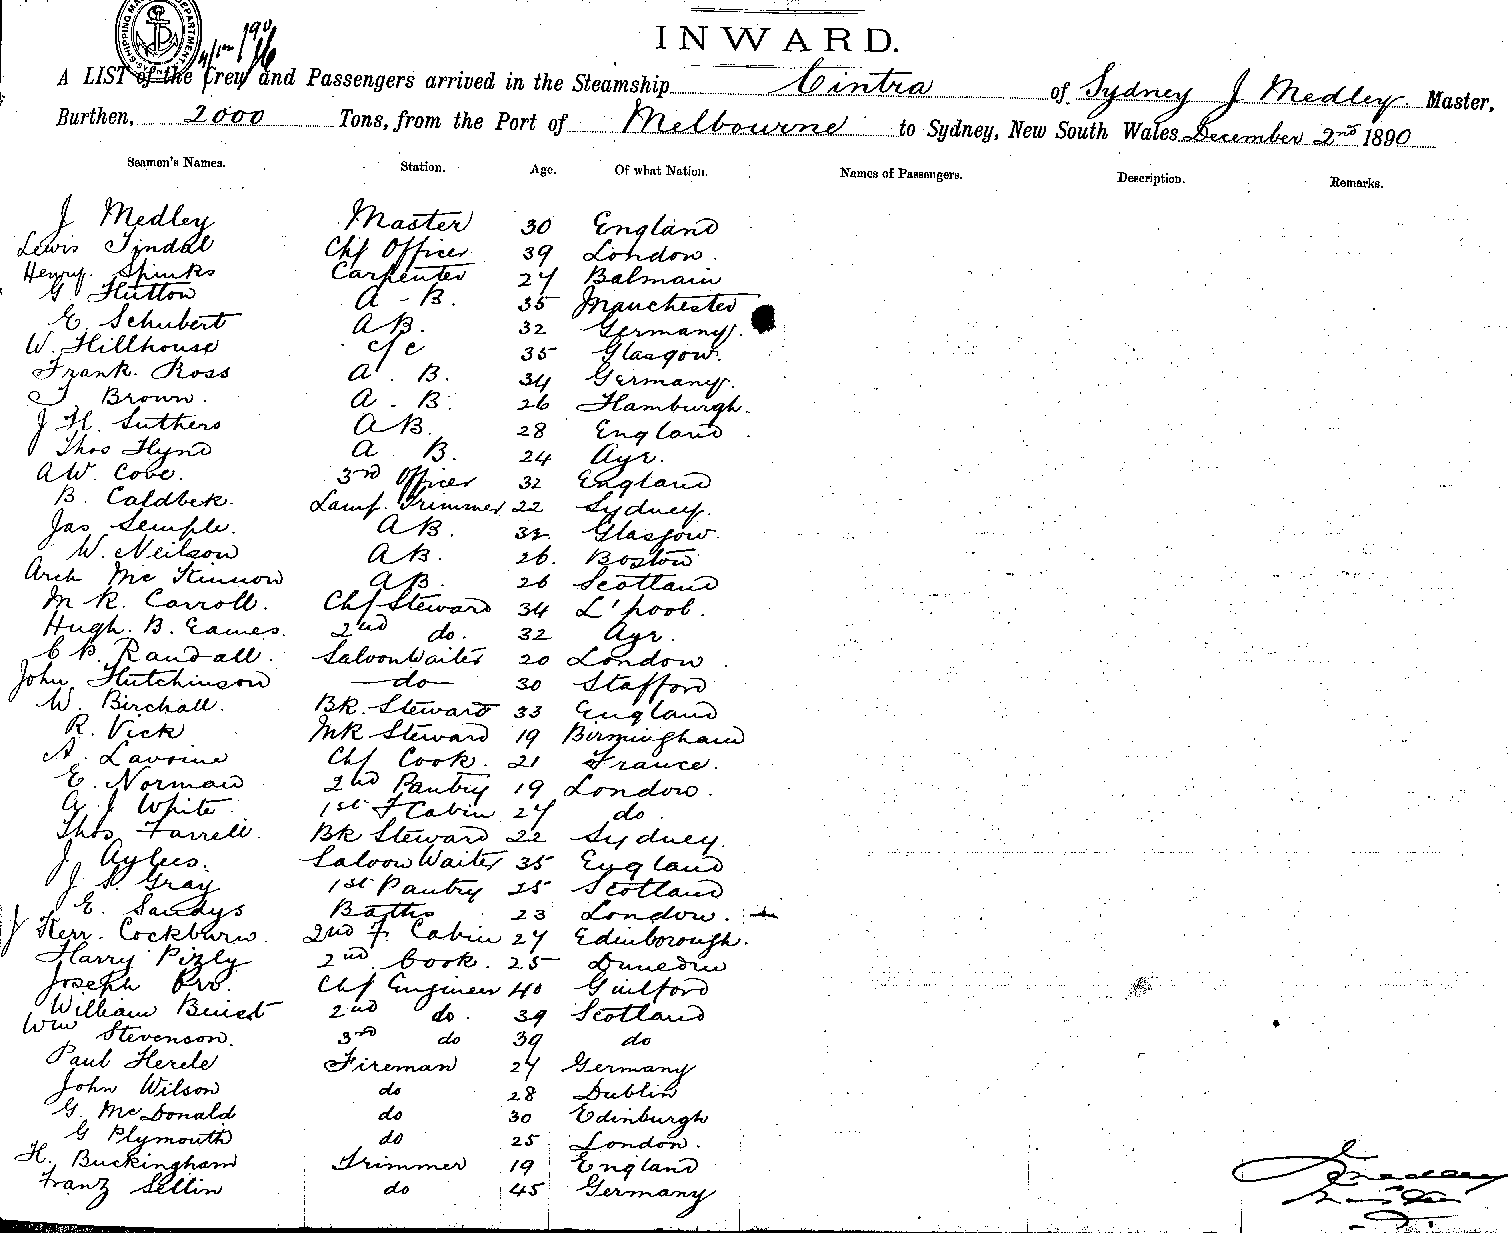 INWARD.
A LIST of the Crew and Passengers arrived in the Steamship Cintra of Sydney J Medley Master,
Burthen, 2000 Tons, from the Port of Melbourne to Sydney, New South Wales December 2nd 1890
Seamen's Names. Station. Age. Of what Nation. Names of Passengers. Description. Remarks.
J Medley Master 30 England
Lewis Tindal Chf Officer 39 London.
Henry Spinks Carpenter 27 Balmain
G Hutton A - B. 35 Manchester
E. Schubert AB. 32 Germany.
W. Hillhouse 35 Glasgow.
Frank Ross A. B. 34 Germany.
T. Brown. A. B. 26 Hamburgh.
J H. Suthers AB. 28 England
Thos Hynd A B. 24 Ayr.
AW. Cove. 3rd Officer 32 England
B. Caldbek. Lamp. Trimmer 22 Sydney.
Jas Semple. AB. 32 Glasgow.
W. Neilson AB. 26. Boston
Arch McKinnon AB. 26 Scotland
M R. Carroll. Chf Steward 34 L'pool.
Hugh. B. Eames. 2nd do. 32 Ayr.
C P. Randall. Saloon Waiter 20 London
John Hutchinson do 30 Stafford
W. Birchall. BK. Steward 33 England
R. Vick MK Steward 19 Birmingham
A. Lavoine Chf Cook. 21 France.
E. Norman 2nd Pantry 19 London.
A J White. 1st F Cabin 27 do.
Thos Farrell. BK Steward 22 Sydney.
J. Saloon Waiter 35 England
J S. Gray 1st Pantry 25 Scotland
E. Sandys Baths 23 London.
J Kerr. Cockburn. 2nd F. Cabin 27 Edinborough.
Harry Pizly 2nd Cook. 25 Dunedin
Joseph Chf Engineer 40 Guilford
William Buist 2nd do. 39 Scotland
Wm Stevenson. 3rd do 39 do
Paul Herele Fireman 27 Germany
John Wilson do 28 Dublin
G. McDonald do 30 Edinburgh
G Plymouth do 25 London.
H. Buckingham Trimmer 19 England
Franz Sellin do 45 Germany
J Medley
Master